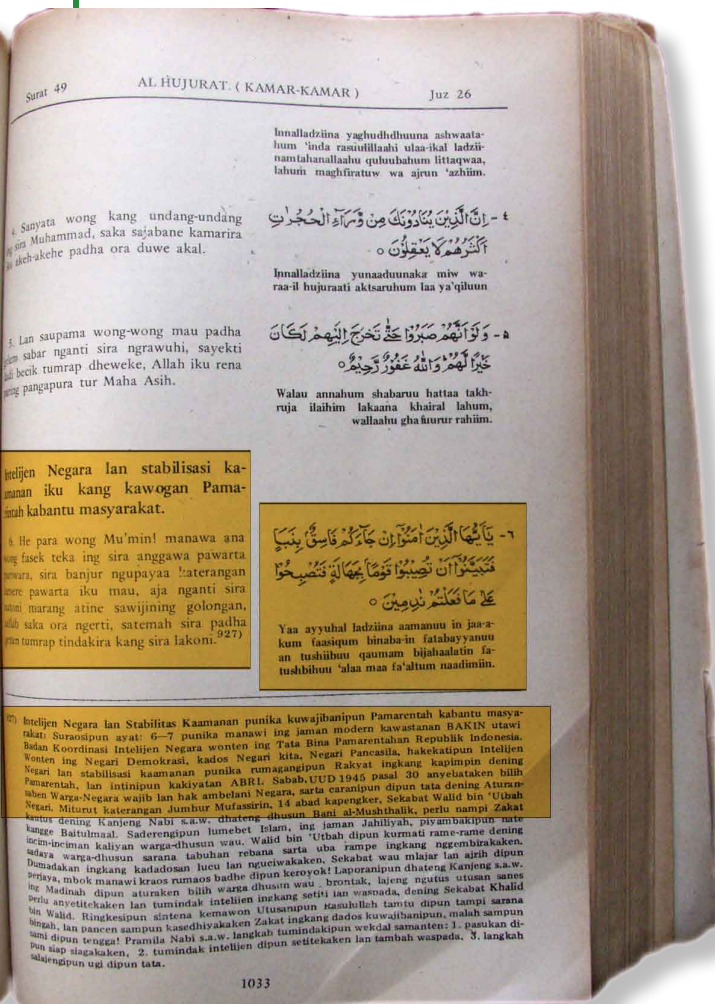 Surat 49
AL HUJURAT. ( KAMAR-KAMAR )
Juz 26
Innalladziina yaghudhdhuuna ashwaata-
hum 'inda rasuulillaahi ulaa-ikal ladzii-
namtahanallaahu quluubahum littaqwaa,
lahum maghfiratuw wa ajrun 'azhiim.
4. Sanyata wong kang undang-undang
ing sira Muhammad, saka sajabane kamarira
akeh-akehe padha ora duwe akal.
٤ - اِنَّ الَّذِيْنَ يُنَادُوْنَكَ مِنْ وَّرَآءِ الْحُجُرٰتِ
اَكْثَرُهُمْ لَا يَعْقِلُوْنَ ○
Innalladziina yunaaduunaka miw wa-
raa-il hujuraati aktsaruhum laa ya'qiluun
5. Lan saupama wong-wong mau padha
sabar nganti sira ngrawuhi, sayekti
becik tumrap dheweke, Allah iku rena
paring pangapura tur Maha Asih.
٥ - وَلَوْ اَنَّهُمْ صَبَرُوْا حَتّٰى تَخْرُجَ اِلَيْهِمْ لَكَانَ
خَيْرًا لَّهُمْ وَاللّٰهُ غَفُوْرٌ رَّحِيْمٌ ○
Walau annahum shabaruu hattaa takh-
ruja ilaihim lakaana khairal lahum,
wallaahu ghafuurur rahiim.
Intelijen Negara lan stabilisasi ka-
amanan iku kang kawogan Pama-
rintah kabantu masyarakat.
6. He para wong Mu'min! manawa ana
wong fasek teka ing sira anggawa pawarta
sira banjur ngupayaa katerangan
pawarta iku mau, aja nganti sira
marang atine sawijining golongan,
saka ora ngerti, satemah sira padha
tumrap tindakira kang sira lakoni. 927)
٦ - يٰٓاَيُّهَا الَّذِيْنَ اٰمَنُوْٓا اِنْ جَآءَكُمْ فَاسِقٌۢ بِنَبَاٍ
فَتَبَيَّنُوْٓا اَنْ تُصِيْبُوْا قَوْمًاۢ بِجَهَالَةٍ فَتُصْبِحُوْا
عَلٰى مَا فَعَلْتُمْ نٰدِمِيْنَ ○
Yaa ayyuhal ladziina aamanuu in jaa-a-
kum faasiqum binaba-in fatabayyanuu
an tushiibuu qaumam bijahaalatin fa-
tushbihuu 'alaa maa fa'altum naadimiin.
927) Intelijen Negara lan Stabilitas Kaamanan punika kuwajibanipun Pamarentah kabantu masya-
rakat: Suraosipun ayat: 6—7 punika manawi ing jaman modern kawastanan BAKIN utawi
Badan Koordinasi Intelijen Negara wonten ing Tata Bina Pamarentahan Republik Indonesia.
Wonten ing Negari Demokrasi, kados Negari kita, Negari Pancasila, hakekatipun Intelijen
Negari lan stabilisasi kaamanan punika rumagangipun Rakyat ingkang kapimpin dening
Pamarentah, lan intinipun kakiyatan ABRI. Sabab, UUD 1945 pasal 30 anyebataken bilih
saben Warga-Negara wajib lan hak ambelani Negara, sarta caranipun dipun tata dening Aturan
Negari. Miturut katerangan Jumhur Mufassirin, 14 abad kapengker, Sekabat Walid bin 'Utbah
kautus dening Kanjeng Nabi s.a.w. dhateng dhusun Bani al-Mushthalik, perlu nampi Zakat
kangge Baitulmaal. Saderengipun lumebet Islam, ing jaman Jahiliyah, piyambakipun nate
incim-inciman kaliyan warga-dhusun wau. Walid bin 'Utbah dipun kurmati rame-rame dening
sadaya warga-dhusun sarana tabuhan rebana sarta uba rampe ingkang nggembirakaken.
Dumadakan ingkang kadadosan lucu lan nguciwakaken. Sekabat wau mlajar lan ajrih dipun
perjaya, mbok manawi kraos rumaos badhe dipun keroyok! Laporanipun dhateng Kanjeng s.a.w.
ing Madinah dipun aturaken bilih warga dhusun wau brontak, lajeng ngutus utusan sanes
perlu anyetitekaken lan tumindak intelijen ingkang setiti lan waspada, dening Sekabat Khalid
bin Walid. Ringkesipun sintena kemawon Utusanipun Rasulullah tamtu dipun tampi sarana
bingah, lan pancen sampun kasedhiyakaken Zakat ingkang dados kuwajibanipun, malah sampun
sami dipun tengga! Pramila Nabi s.a.w. langkah tumindakipun wekdal samanten: 1. pasukan di-
pun siap siagakaken, 2. tumindak intelijen dipun setitekaken lan tambah waspada, 3. langkah
salajengipun ugi dipun tata.
1033